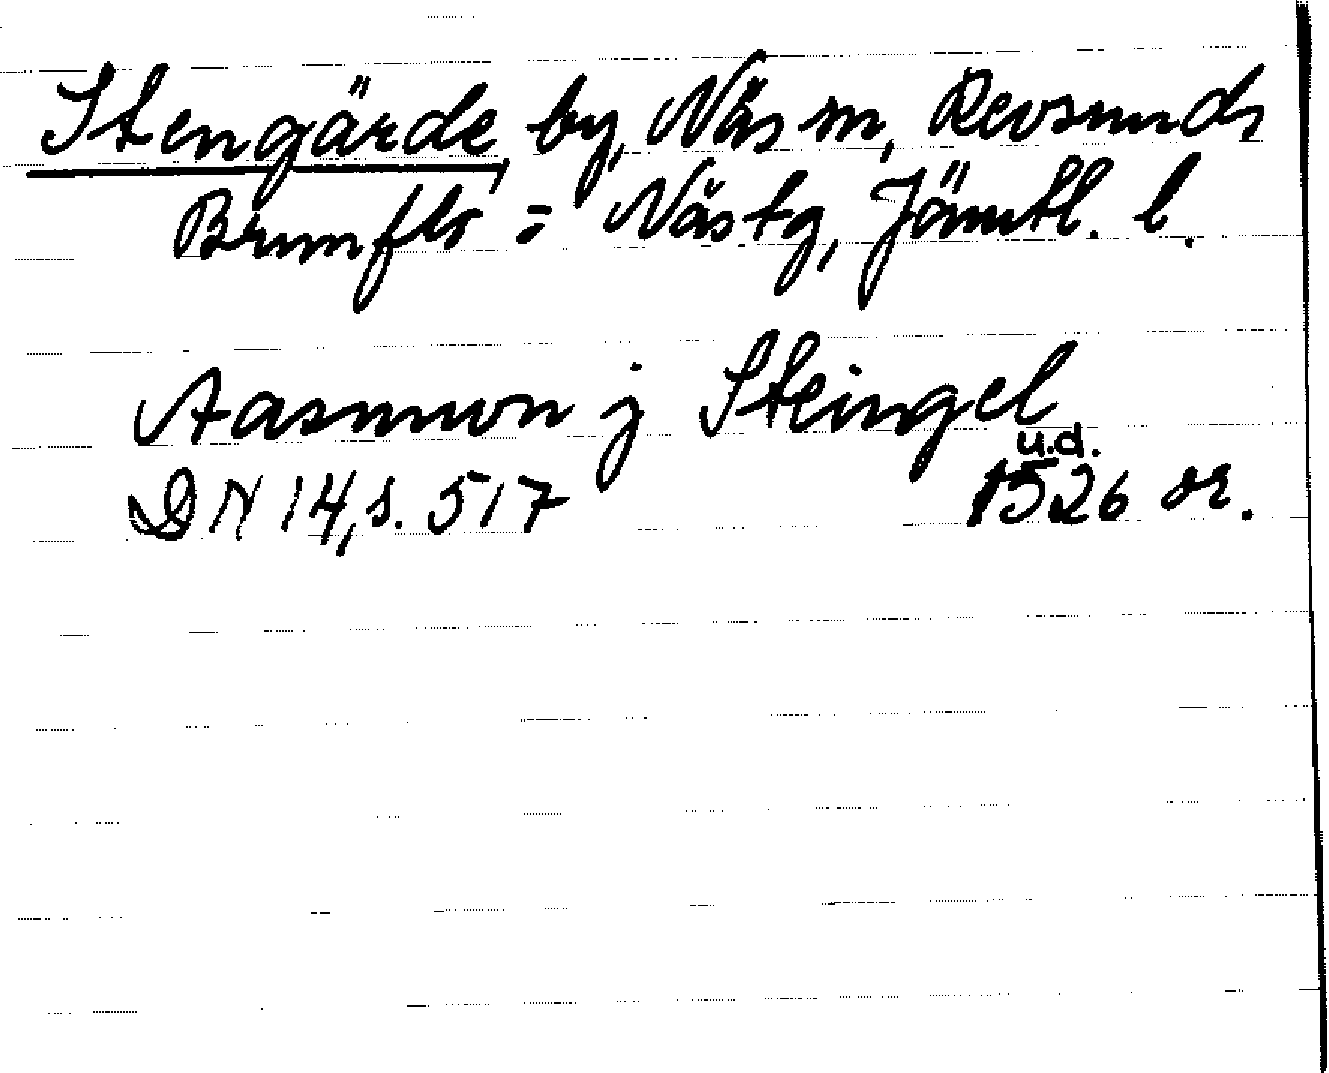 Stengärde, by, Näs sn, Revsunds
Brunflo = Näs tg, Jämtl. l.
Aasmwn j Steingel
u.d.
DN 14, s. 517 1526 or.